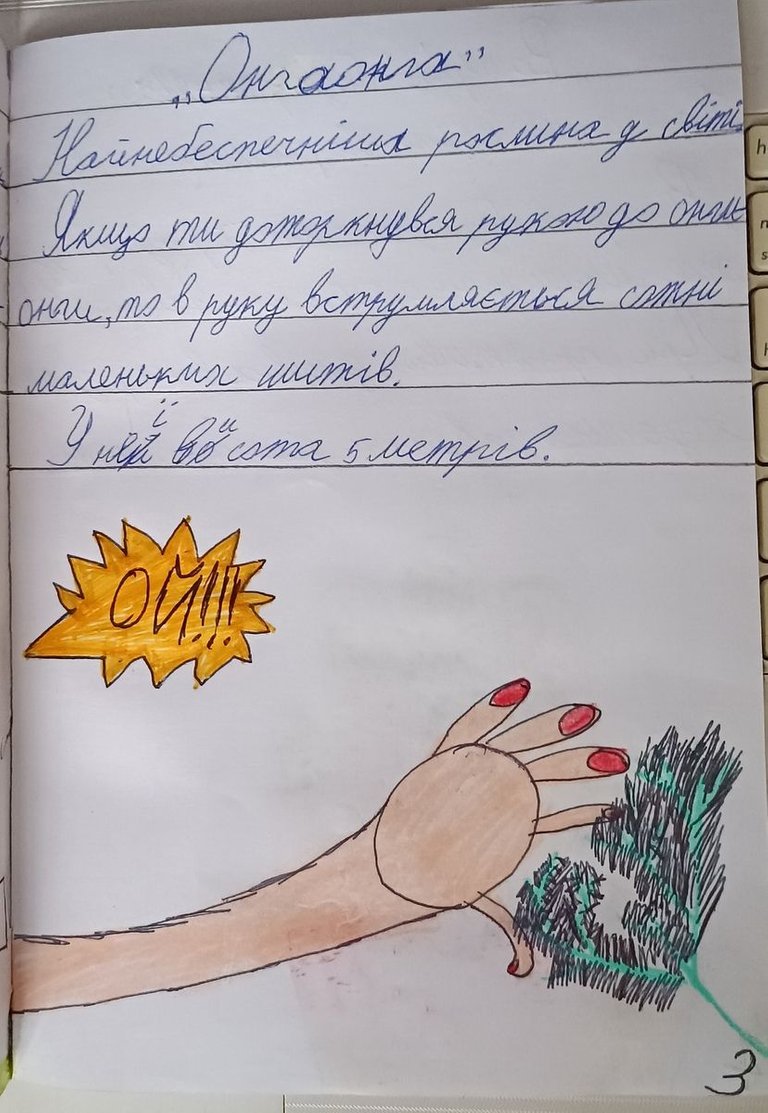 „Онгаонга”
Найнебезпечніша рослина у світі.
Якщо ти доторкнувся рукою до онга-
онги, то в руку встромляється сотні
маленьких шипів.
У неї висота 5 метрів.
ОЙ!!!
3